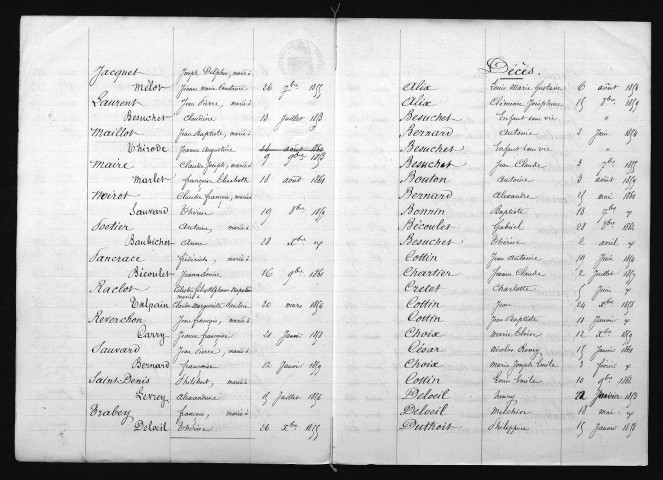 Jacquet Joseph Delphin, marié à
Mélot Jeanne Marie Constance 26 7bre 1855
Laurent Jean Pierre, marié à
Besuchet Claudine 13 Juillet 1853
Maillot Jean Baptiste, marié à
Thirode Jeanne Augustine
Maire Claude Joseph, marié à 9 9bre 1853
Marlet françoise Elisabeth 18 août 1861
Moirot Claude françois, marié à
Sauvard Thérèse 19 8bre 1859
Antoine, marié à
Baubichet Anne 28 Xbre
frédéric, marié à
Bécoulet Jeanne Louise 16 9bre 1861
Raclot
marié à
Claudine Marguerite 20 mars 1854
Reverchon Jean françois, marié à
Carry Jeanne françoise 21 Janvier 1853
Sauvard Jean Pierre, marié à
Bernard françoise 12 Janvier 1859
Saint Denis Philibert, marié à
Levrey Alexandrine 15 Juillet 1856
Trabey françois, marié à
Deloeil Thérèse 26 Xbre 1855
Décès.
Alix Louis Marie Gustave 6 août 1854
Alix Clémence Joséphine 15 8bre 1859
Besuchet Enfant sans vie "
Bernard Antoine 2 Juin 1854
Besuchet Enfant sans vie "
Besuchet Jean Claude 3 7bre 1855
Bouton Antoine 3 août 1859
Bernard Alexandre 25 mai 1861
Bonnin Baptiste 13 9bre
Bécoulet Gabriel 28 8bre 1862
Besuchet Thérèse 2 avril
Cottin Jean Antoine 19 Juin 1854
Chartier Jeanne Claude 2 Juillet 1857
Cretet Charlotte 5 Juin
Cottin Jean 24 Xbre 1858
Cottin Jean Baptiste 11 Janvier
Choix Marie Eloise 12 Xbre 1859
César Nicolas Remy 15 Janvier 1861
Choix Marie Joseph Emile 3 février
Cottin Louis Emile 10 9bre 1862
Deloeil henry Janvier 1853
Deloeil Melchior 18 mai
Duthoit Philippine 15 Janvier 1858